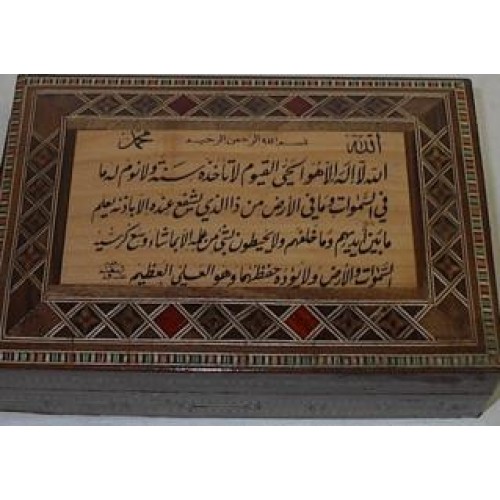 الله بسم الله الرحمن الرحيم محمد
الله لا اله الا هو الحي القيوم لا تأخذه سنة ولا نوم له ما
في السموات وما في الارض من ذا الذي يشفع عنده الا باذنه يعلم
ما بين أيديهم وما خلفهم ولا يحيطون بشئ من علمه الا بما شاء وسع كرسيه
السموات والأرض ولا يؤده حفظهما وهو العلي العظيم